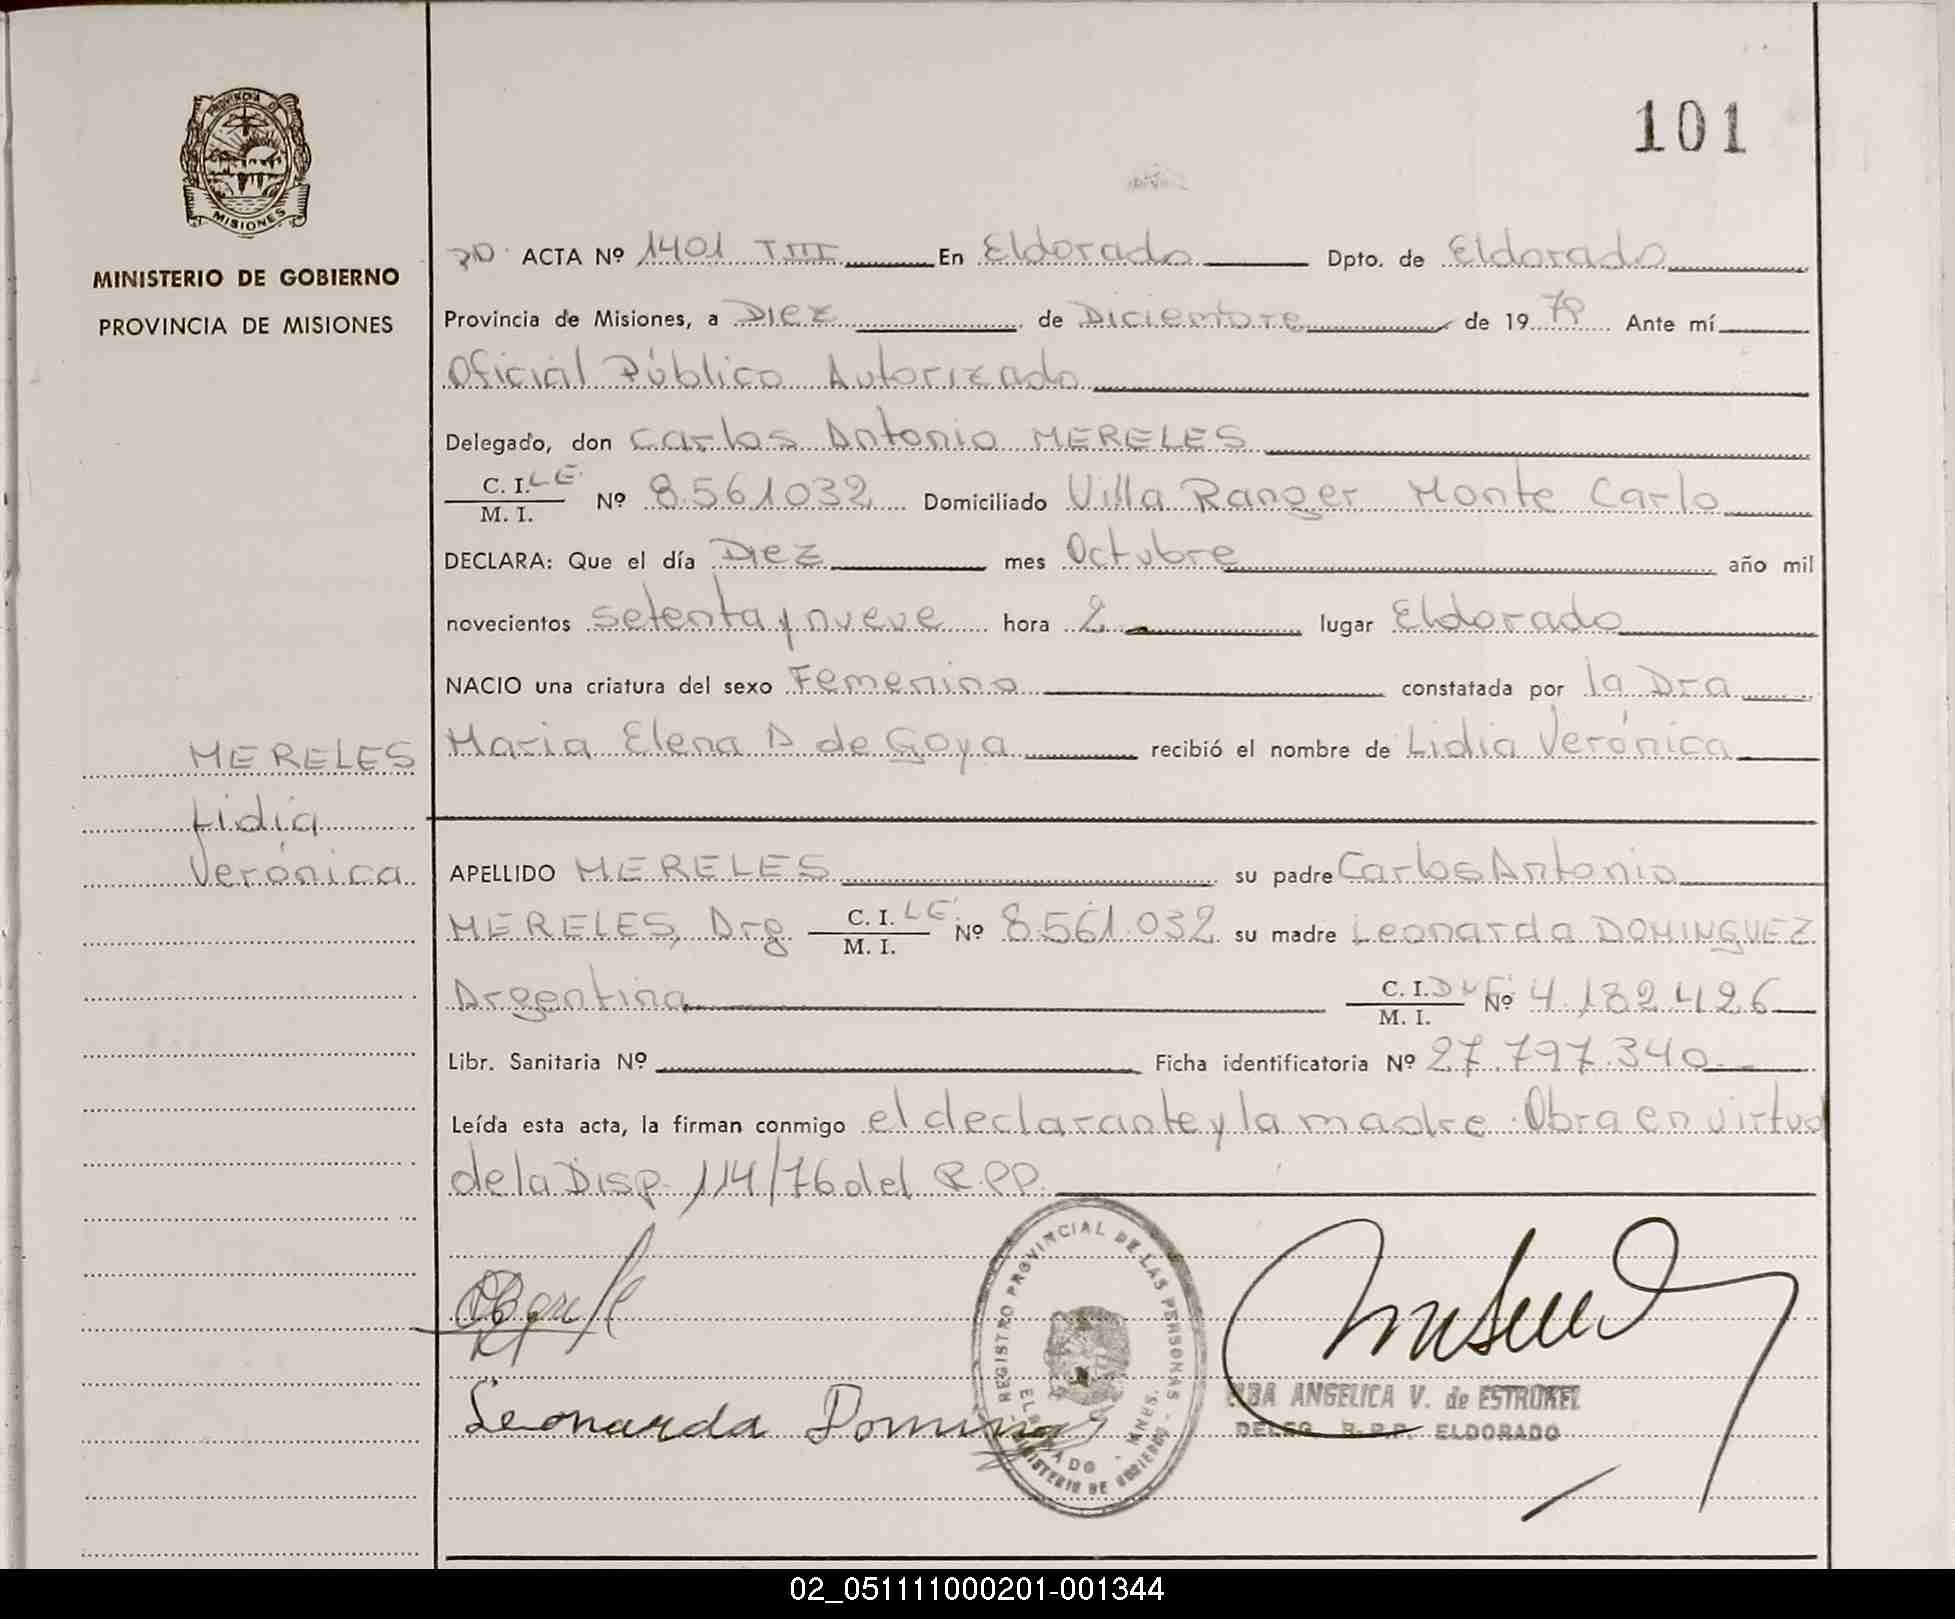 PROVINCIA DE
MISIONES
MINISTERIO DE GOBIERNO
PROVINCIA DE MISIONES
MERELES
Lidia
Verónica
101
ACTA Nº 1401 TIII En Eldorado Dpto. de Eldorado
Provincia de Misiones, a Diez de Diciembre de 1979 Ante mí
Oficial Público Autorizado
Delegado, don Carlos Antonio MERELES
C. I. LE
M. I. Nº 8.561.032 Domiciliado Villa Ranger Monte Carlo
DECLARA: Que el día Diez mes Octubre año mil
novecientos setenta y nueve hora 2 lugar Eldorado
NACIO una criatura del sexo Femenino constatada por la Dra
Maria Elena A de Goya recibió el nombre de Lidia Verónica
APELLIDO MERELES su padre Carlos Antonio
MERELES, Arg C. I. LE Nº 8.561.032 su madre Leonarda DOMINGUEZ
M. I.
Argentina C. I. Nº 4.182.426
M. I.
Libr. Sanitaria Nº Ficha identificatoria Nº 27.797.340
Leída esta acta, la firman conmigo el declarante y la madre. Obra en virtud
de la Disp. 114/76 del R.PP.
Leonarda Doming
REGISTRO PROVINCIAL DE LAS PERSONAS
ELDORADO - MNES.
MINISTERIO DE GOBIERNO
ANGELICA V. de
DELEG. R.P.P. ELDORADO
02_051111000201-001344